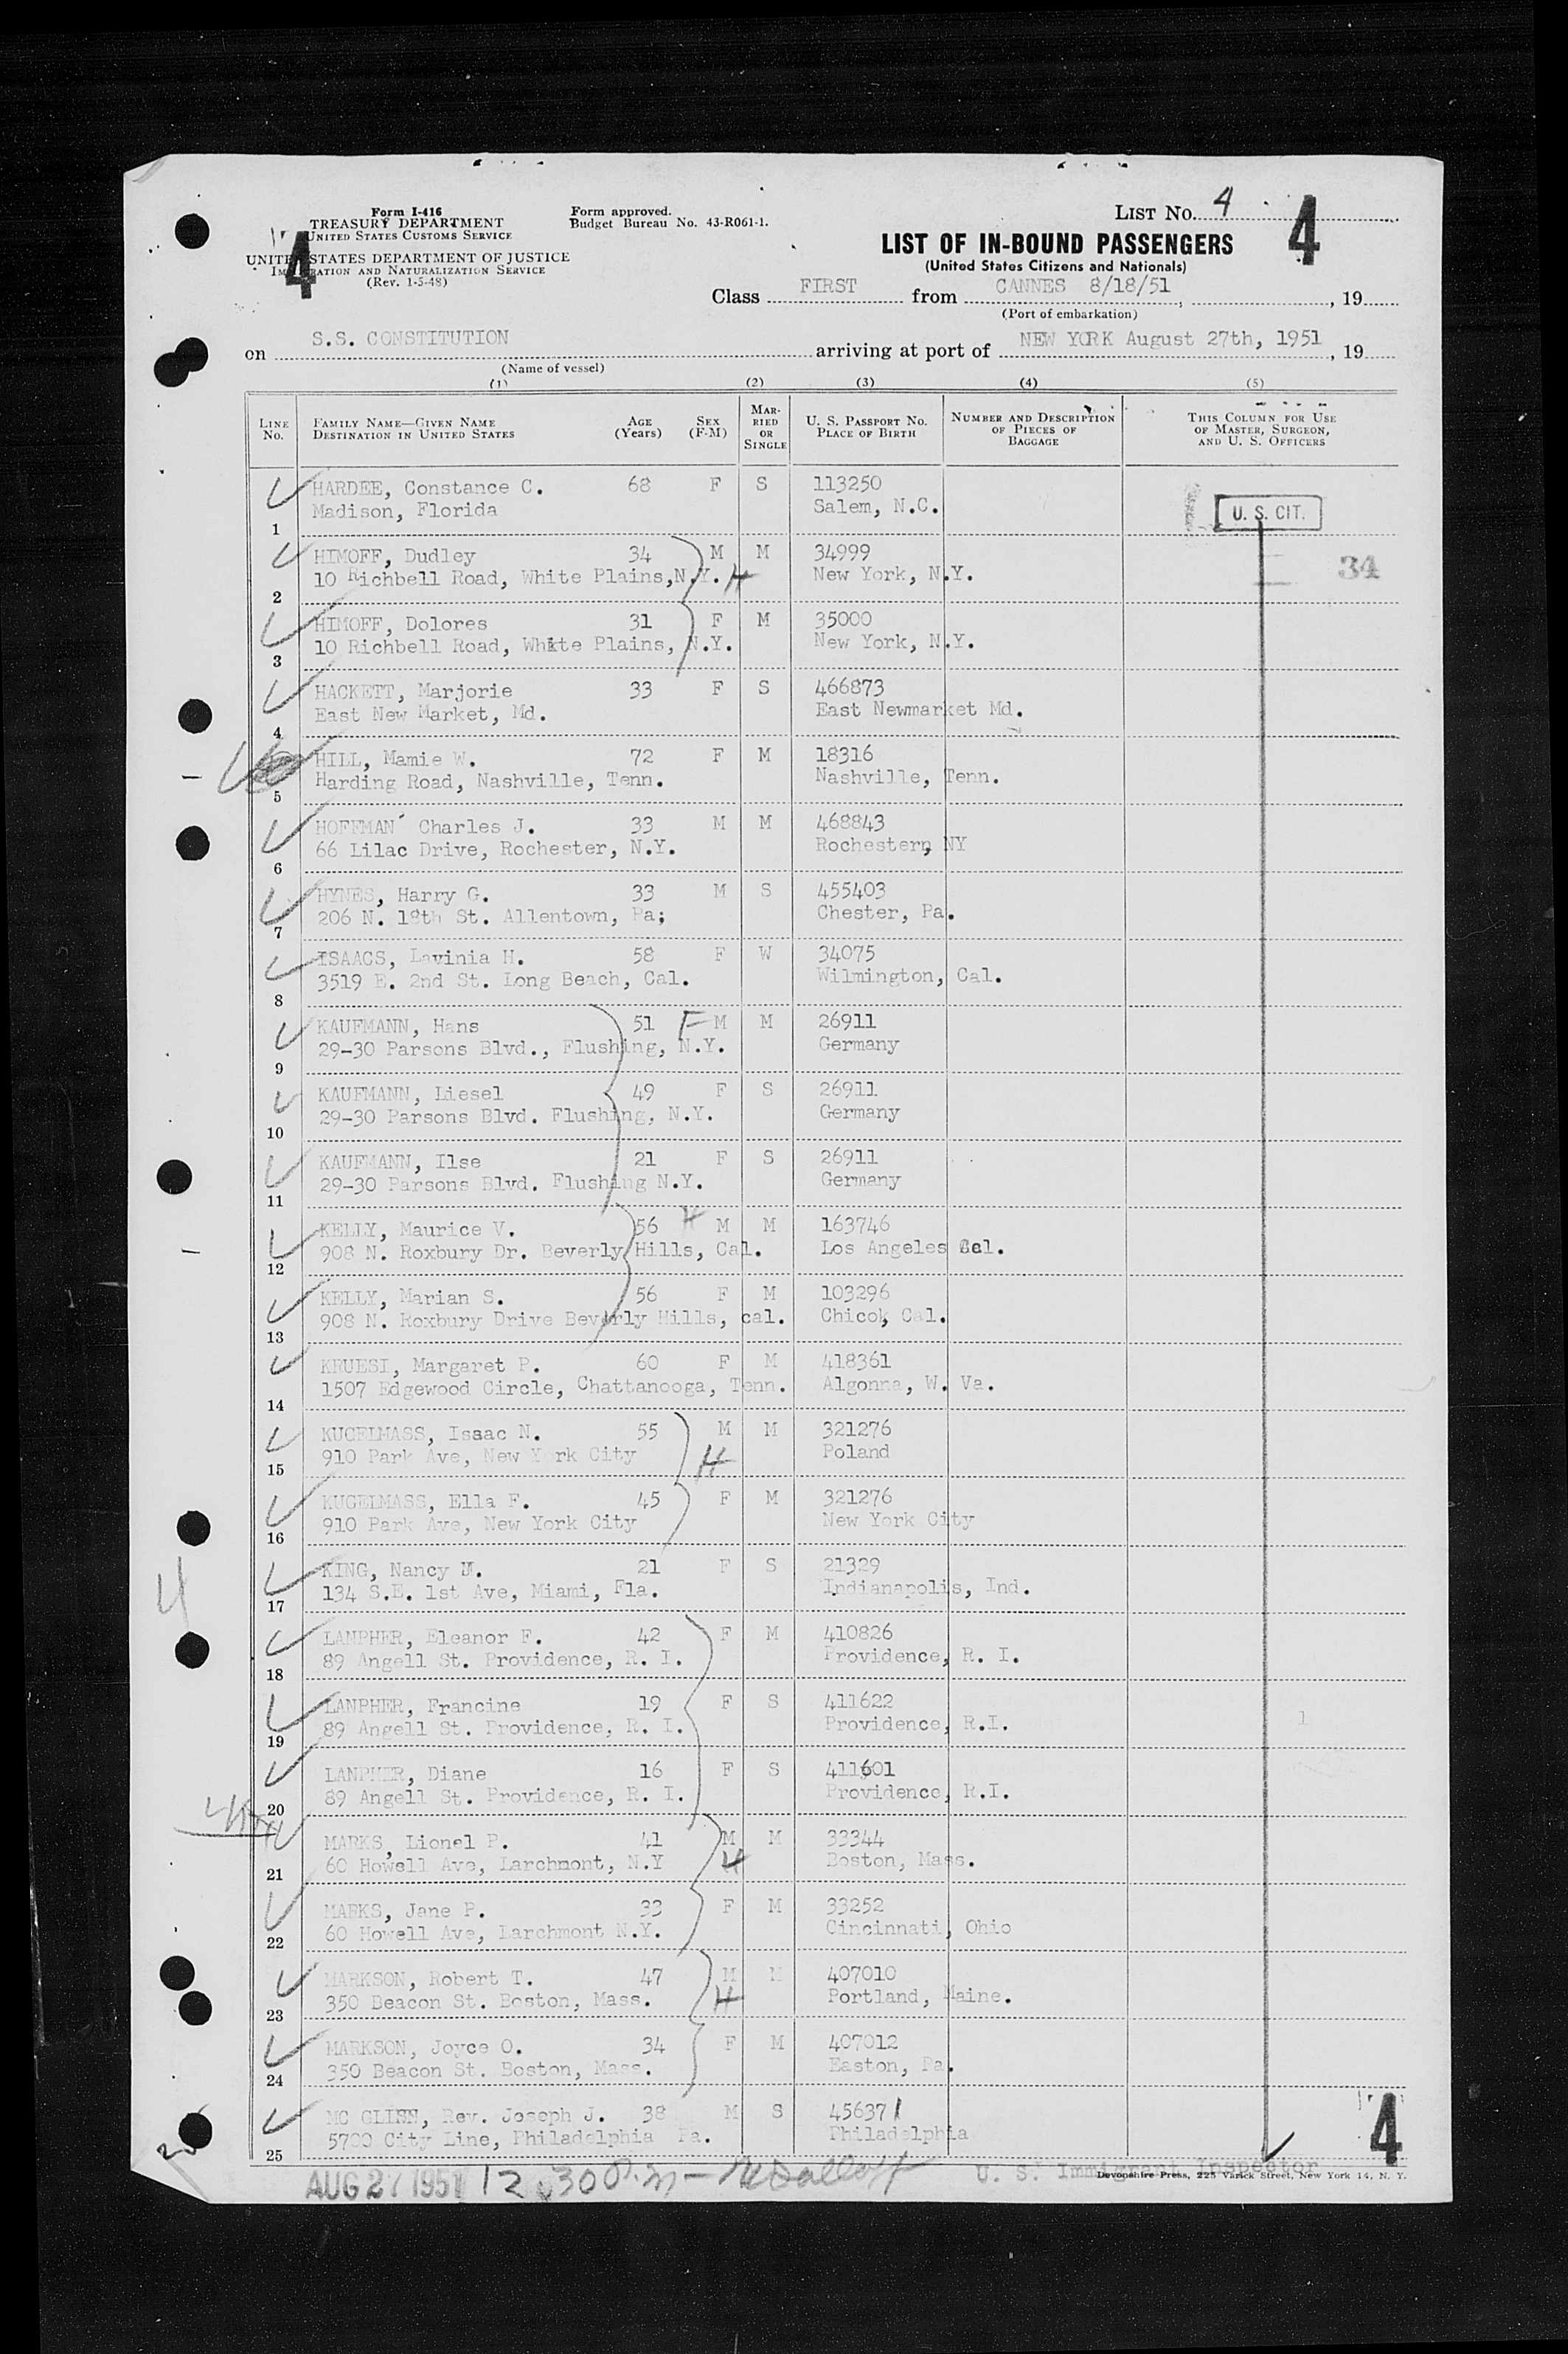 Form I-416
TREASURY DEPARTMENT
UNITED STATES CUSTOMS SERVICE
UNITED STATES DEPARTMENT OF JUSTICE
IMMIGRATION AND NATURALIZATION SERVICE
(Rev. 1-5-48)
4
Form approved.
Budget Bureau No. 43-R061-1.
LIST No. 4
4
LIST OF IN-BOUND PASSENGERS
(United States Citizens and Nationals)
Class FIRST from CANNES 8/18/51, , 19
(Port of embarkation)
on S.S. CONSTITUTION arriving at port of NEW YORK August 27th, 1951, 19
(Name of vessel)
(1) (2) (3) (4) (5)
LINE No. FAMILY NAME—GIVEN NAME DESTINATION IN UNITED STATES AGE (Years) SEX (F-M) MARRIED OR SINGLE U. S. PASSPORT NO. PLACE OF BIRTH NUMBER AND DESCRIPTION OF PIECES OF BAGGAGE THIS COLUMN FOR USE OF MASTER, SURGEON, AND U. S. OFFICERS
HARDEE, Constance C. 68 F S 113250
1 Madison, Florida Salem, N.C. U. S. CIT.
HIMOFF, Dudley 34 M M 34999
2 10 Richbell Road, White Plains,N.Y. H New York, N.Y. 34
HIMOFF, Dolores 31 F M 35000
3 10 Richbell Road, White Plains, N.Y. New York, N.Y.
HACKETT, Marjorie 33 F S 466873
4 East New Market, Md. East Newmarket Md.
HILL, Mamie W. 72 F M 18316
5 Harding Road, Nashville, Tenn. Nashville, Tenn.
HOFFMAN Charles J. 33 M M 468843
6 66 Lilac Drive, Rochester, N.Y. Rochester, NY
HYNES, Harry G. 33 M S 455403
7 206 N. 18th St. Allentown, Pa; Chester, Pa.
ISAACS, Lavinia H. 58 F W 34075
8 3519 E. 2nd St. Long Beach, Cal. Wilmington, Cal.
KAUFMANN, Hans 51 F M M 26911
9 29-30 Parsons Blvd., Flushing, N.Y. Germany
KAUFMANN, Liesel 49 F S 26911
10 29-30 Parsons Blvd. Flushing, N.Y. Germany
KAUFMANN, Ilse 21 F S 26911
11 29-30 Parsons Blvd. Flushing N.Y. Germany
KELLY, Maurice V. 56 H M M 163746
12 908 N. Roxbury Dr. Beverly Hills, Cal. Los Angeles Cal.
KELLY, Marian S. 56 F M 103296
13 908 N. Roxbury Drive Beverly Hills, cal. Chico, Cal.
KRUESI, Margaret P. 60 F M 418361
14 1507 Edgewood Circle, Chattanooga, Tenn. Algonna, W. Va.
KUGELMASS, Isaac N. 55 M M 321276
15 910 Park Ave, New York City H Poland
KUGELMASS, Ella F. 45 F M 321276
16 910 Park Ave, New York City New York City
KING, Nancy M. 21 F S 21329
17 134 S.E. 1st Ave, Miami, Fla. Indianapolis, Ind.
LANPHER, Eleanor F. 42 F M 410826
18 89 Angell St. Providence, R. I. Providence, R. I.
LANPHER, Francine 19 F S 411622
19 89 Angell St. Providence, R. I. Providence, R.I. 1
LANPHER, Diane 16 F S 411601
20 89 Angell St. Providence, R. I. Providence, R.I.
MARKS, Lionel P. 41 M M 33344
21 60 Howell Ave, Larchmont, N.Y H Boston, Mass.
MARKS, Jane P. 33 F M 33252
22 60 Howell Ave, Larchmont N.Y. Cincinnati, Ohio
MARKSON, Robert T. 47 M M 407010
23 350 Beacon St. Boston, Mass. H Portland, Maine.
MARKSON, Joyce O. 34 F M 407012
24 350 Beacon St. Boston, Mass. Easton, Pa.
MC GLINN, Rev. Joseph J. 38 M S 456371
25 5700 City Line, Philadelphia Pa. Philadelphia
4
AUG 27 1951 12:30 P.m —
U. S. Immigrant Inspector
Devonshire Press, 225 Varick Street, New York 14, N. Y.